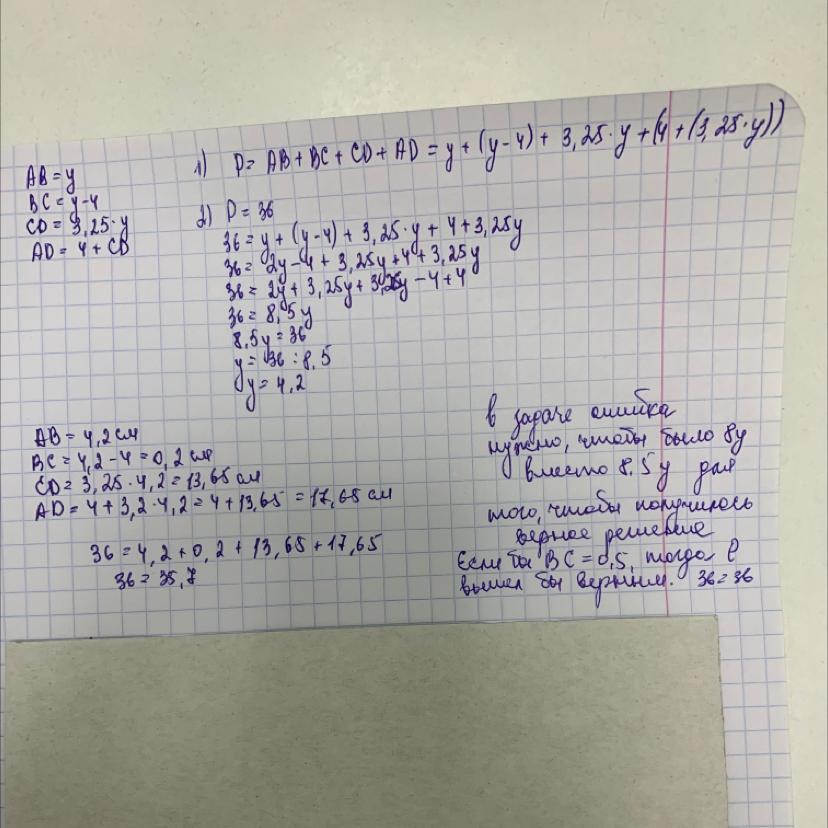 AB = y
BC = y-4
CD = 3,25·y
AD = 4 + CD
1) P = AB + BC + CD + AD = y + (y-4) + 3,25·y + (4 + (3,25·y))
2) P = 36
36 = y + (y-4) + 3,25·y + 4 + 3,25y
36 = 2y - 4 + 3,25y + 4 + 3,25y
36 = 2y + 3,25y + 3,25y - 4 + 4
36 = 8,5y
8,5y = 36
y = 36 : 8,5
y = 4,2
AB = 4,2 см
BC = 4,2 - 4 = 0,2 см
CD = 3,25·4,2 = 13,65 см
AD = 4 + 3,2·4,2 = 4 + 13,65 = 17,65 см
36 = 4,2 + 0,2 + 13,65 + 17,65
36 = 35,7
в задаче ошибка
нужно, чтобы было 8y
вместо 8.5y для
того, чтобы получилось
верное решение
Если бы BC = 0,5, тогда P
вышел бы верным. 36=36